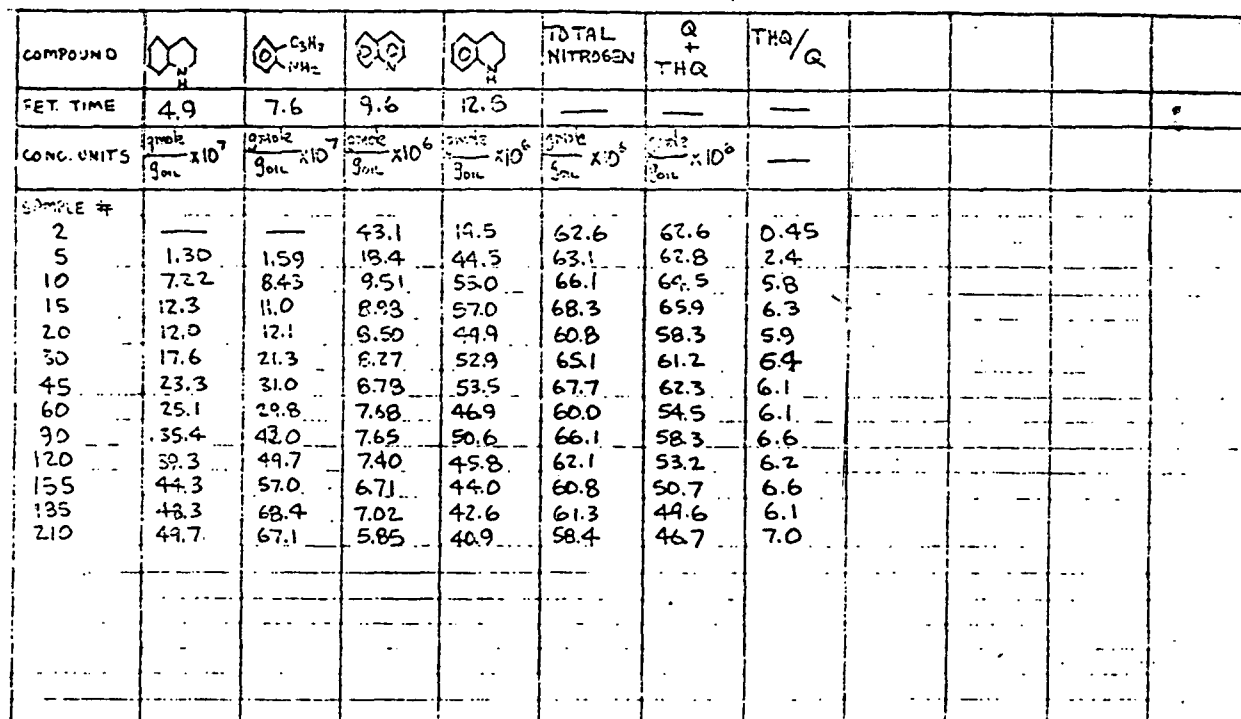 COMPOUND C3H7 NH2 N H N N H TOTAL NITROGEN Q + THQ THQ/Q
RET. TIME 4.9 7.6 9.6 12.5 — — —
CONC. UNITS gmole/gOIL x10^7 gmole/gOIL x10^7 gmole/gOIL x10^6 gmole/gOIL x10^6 gmole/gOIL x10^6 gmole/gOIL x10^6 —
SAMPLE #
2 — — 43.1 19.5 62.6 62.6 0.45
5 1.30 1.59 18.4 44.5 63.1 62.8 2.4
10 7.22 8.43 9.51 55.0 66.1 64.5 5.8
15 12.3 11.0 8.93 57.0 68.3 65.9 6.3
20 12.0 12.1 8.50 49.9 60.8 58.3 5.9
30 17.6 21.3 8.27 52.9 65.1 61.2 6.4
45 23.3 31.0 8.78 53.5 67.7 62.3 6.1
60 25.1 29.8 7.68 46.9 60.0 54.5 6.1
90 35.4 42.0 7.65 50.6 66.1 58.3 6.6
120 39.3 49.7 7.40 45.8 62.1 53.2 6.2
155 44.3 57.0 6.71 44.0 60.8 50.7 6.6
185 48.3 68.4 7.02 42.6 61.3 49.6 6.1
210 49.7 67.1 5.85 40.9 58.4 46.7 7.0